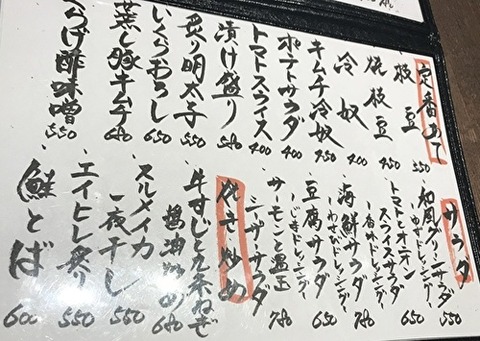 定番あて
枝豆 550
焼枝豆 450
冷奴 350
キムチ冷奴 450
ポテトサラダ 400
トマトスライス 400
漬け盛り 580
炙り明太子 550
いくらおろし 650
蒸し豚キムチ 680
くらげ酢味噌 550
サラダ
和風グリーンサラダ 550
・ゆずドレッシング・
トマトとオニオン
スライスサラダ 650
・香味ドレッシング・
海鮮サラダ 780
・わさびドレッシング・
豆腐サラダ 650
・じゃこドレッシング・
サーモンと温玉
シーザーサラダ 780
焼き炒め
牛すじと九条ねぎ
醤油炒め 680
スルメイカ
一夜干し 550
エイヒレ炙り 550
鮭とば 600